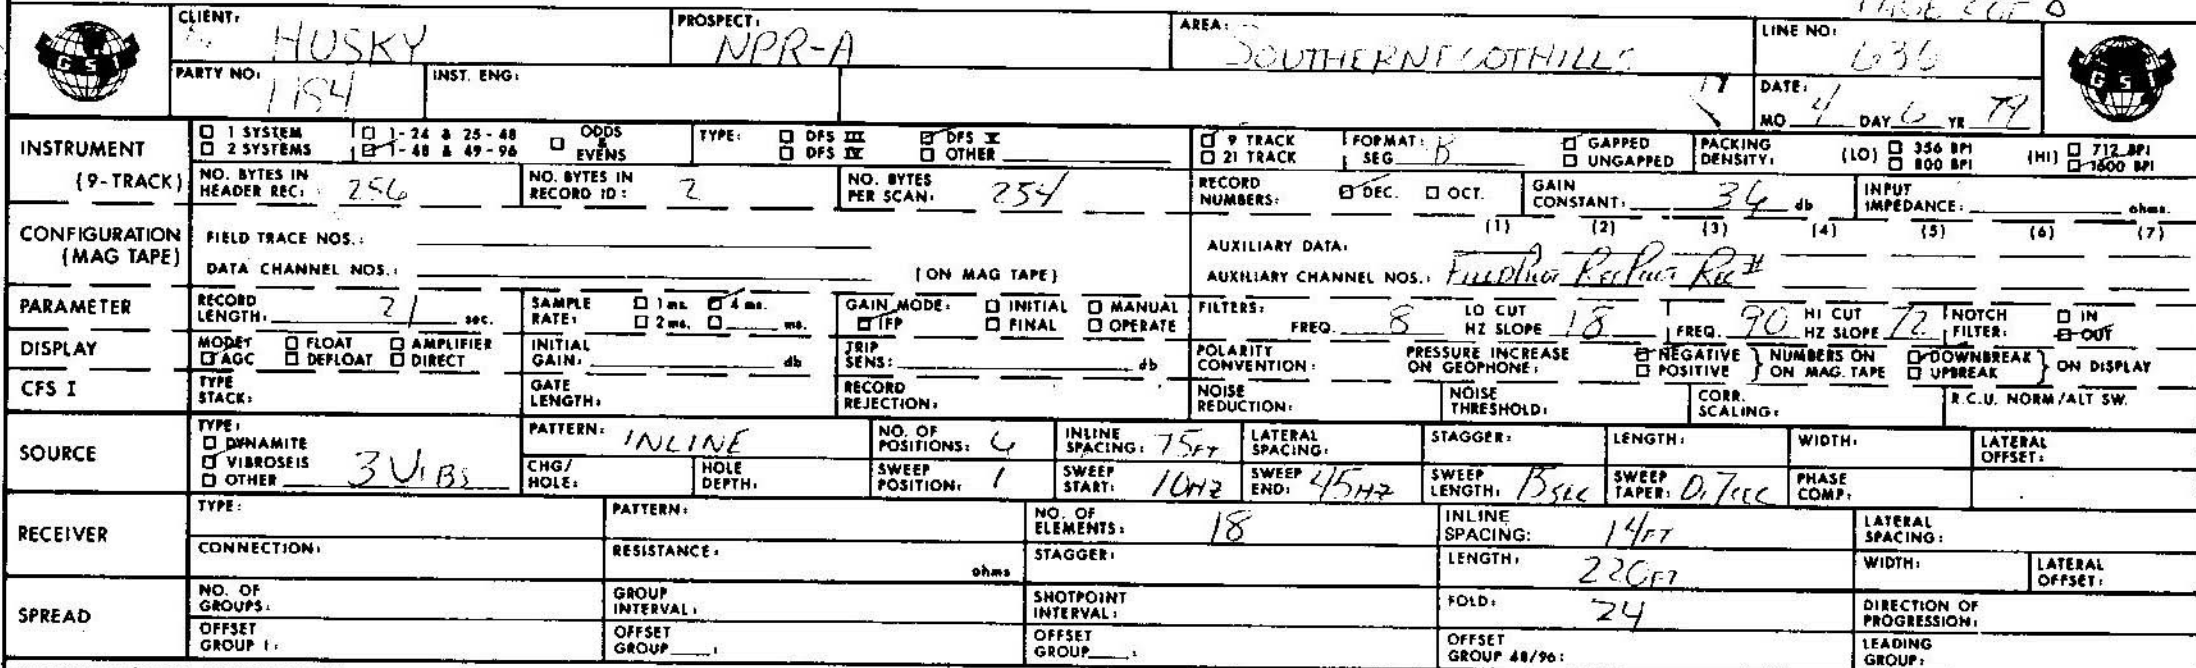 PAGE 2 OF
CLIENT: HUSKY PROSPECT: NPR-A AREA: SOUTHERN FOOTHILLS LINE NO: 636
GSI GSI
PARTY NO: 1184 INST. ENG: DATE: MO 4 DAY 6 YR 79
INSTRUMENT (9-TRACK) □ 1 SYSTEM □ 2 SYSTEMS □ 1-24 & 25-48 ☑ 1-48 & 49-96 □ ODDS & EVENS TYPE: □ DFS III □ DFS IV ☑ DFS V □ OTHER ☑ 9 TRACK □ 21 TRACK FORMAT: SEG B ☑ GAPPED □ UNGAPPED PACKING DENSITY: (LO) □ 356 BPI □ 800 BPI (HI) □ 712 BPI ☑ 1600 BPI
NO. BYTES IN HEADER REC: 256 NO. BYTES IN RECORD ID: 2 NO. BYTES PER SCAN: 254 RECORD NUMBERS: ☑ DEC. □ OCT. GAIN CONSTANT: 36 db INPUT IMPEDANCE: ohms.
CONFIGURATION (MAG TAPE) FIELD TRACE NOS.: AUXILIARY DATA: (1) (2) (3) (4) (5) (6) (7)
DATA CHANNEL NOS.: (ON MAG TAPE) AUXILIARY CHANNEL NOS.: Rec #
PARAMETER RECORD LENGTH: 21 sec. SAMPLE RATE: □ 1 ms. ☑ 4 ms. □ 2 ms. □ ms. GAIN MODE: ☑ IFP □ INITIAL □ FINAL □ MANUAL □ OPERATE FILTERS: FREQ. 8 LO CUT HZ SLOPE 18 FREQ. 90 HI CUT HZ SLOPE 72 NOTCH FILTER: □ IN ☑ OUT
DISPLAY MODE: ☑ AGC □ FLOAT □ DEFLOAT □ AMPLIFIER □ DIRECT INITIAL GAIN: db TRIP SENS: db POLARITY CONVENTION: PRESSURE INCREASE ON GEOPHONE: ☑ NEGATIVE □ POSITIVE } NUMBERS ON ON MAG. TAPE ☑ DOWNBREAK □ UPBREAK } ON DISPLAY
CFS I TYPE STACK: GATE LENGTH: RECORD REJECTION: NOISE REDUCTION: NOISE THRESHOLD: CORR. SCALING: R.C.U. NORM/ALT SW.
SOURCE TYPE: □ DYNAMITE ☑ VIBROSEIS □ OTHER 3 VIBS PATTERN: INLINE NO. OF POSITIONS: 6 INLINE SPACING: 75 FT LATERAL SPACING: STAGGER: LENGTH: WIDTH: LATERAL OFFSET:
CHG/HOLE: HOLE DEPTH: SWEEP POSITION: 1 SWEEP START: 10 HZ SWEEP END: 45 HZ SWEEP LENGTH: 15 SEC SWEEP TAPER: 0.7 SEC PHASE COMP:
RECEIVER TYPE: PATTERN: NO. OF ELEMENTS: 18 INLINE SPACING: 14 FT LATERAL SPACING:
CONNECTION: RESISTANCE: ohms STAGGER: LENGTH: 220 FT WIDTH: LATERAL OFFSET:
SPREAD NO. OF GROUPS: GROUP INTERVAL: SHOTPOINT INTERVAL: FOLD: 24 DIRECTION OF PROGRESSION:
OFFSET GROUP 1: OFFSET GROUP : OFFSET GROUP : OFFSET GROUP 48/96: LEADING GROUP: